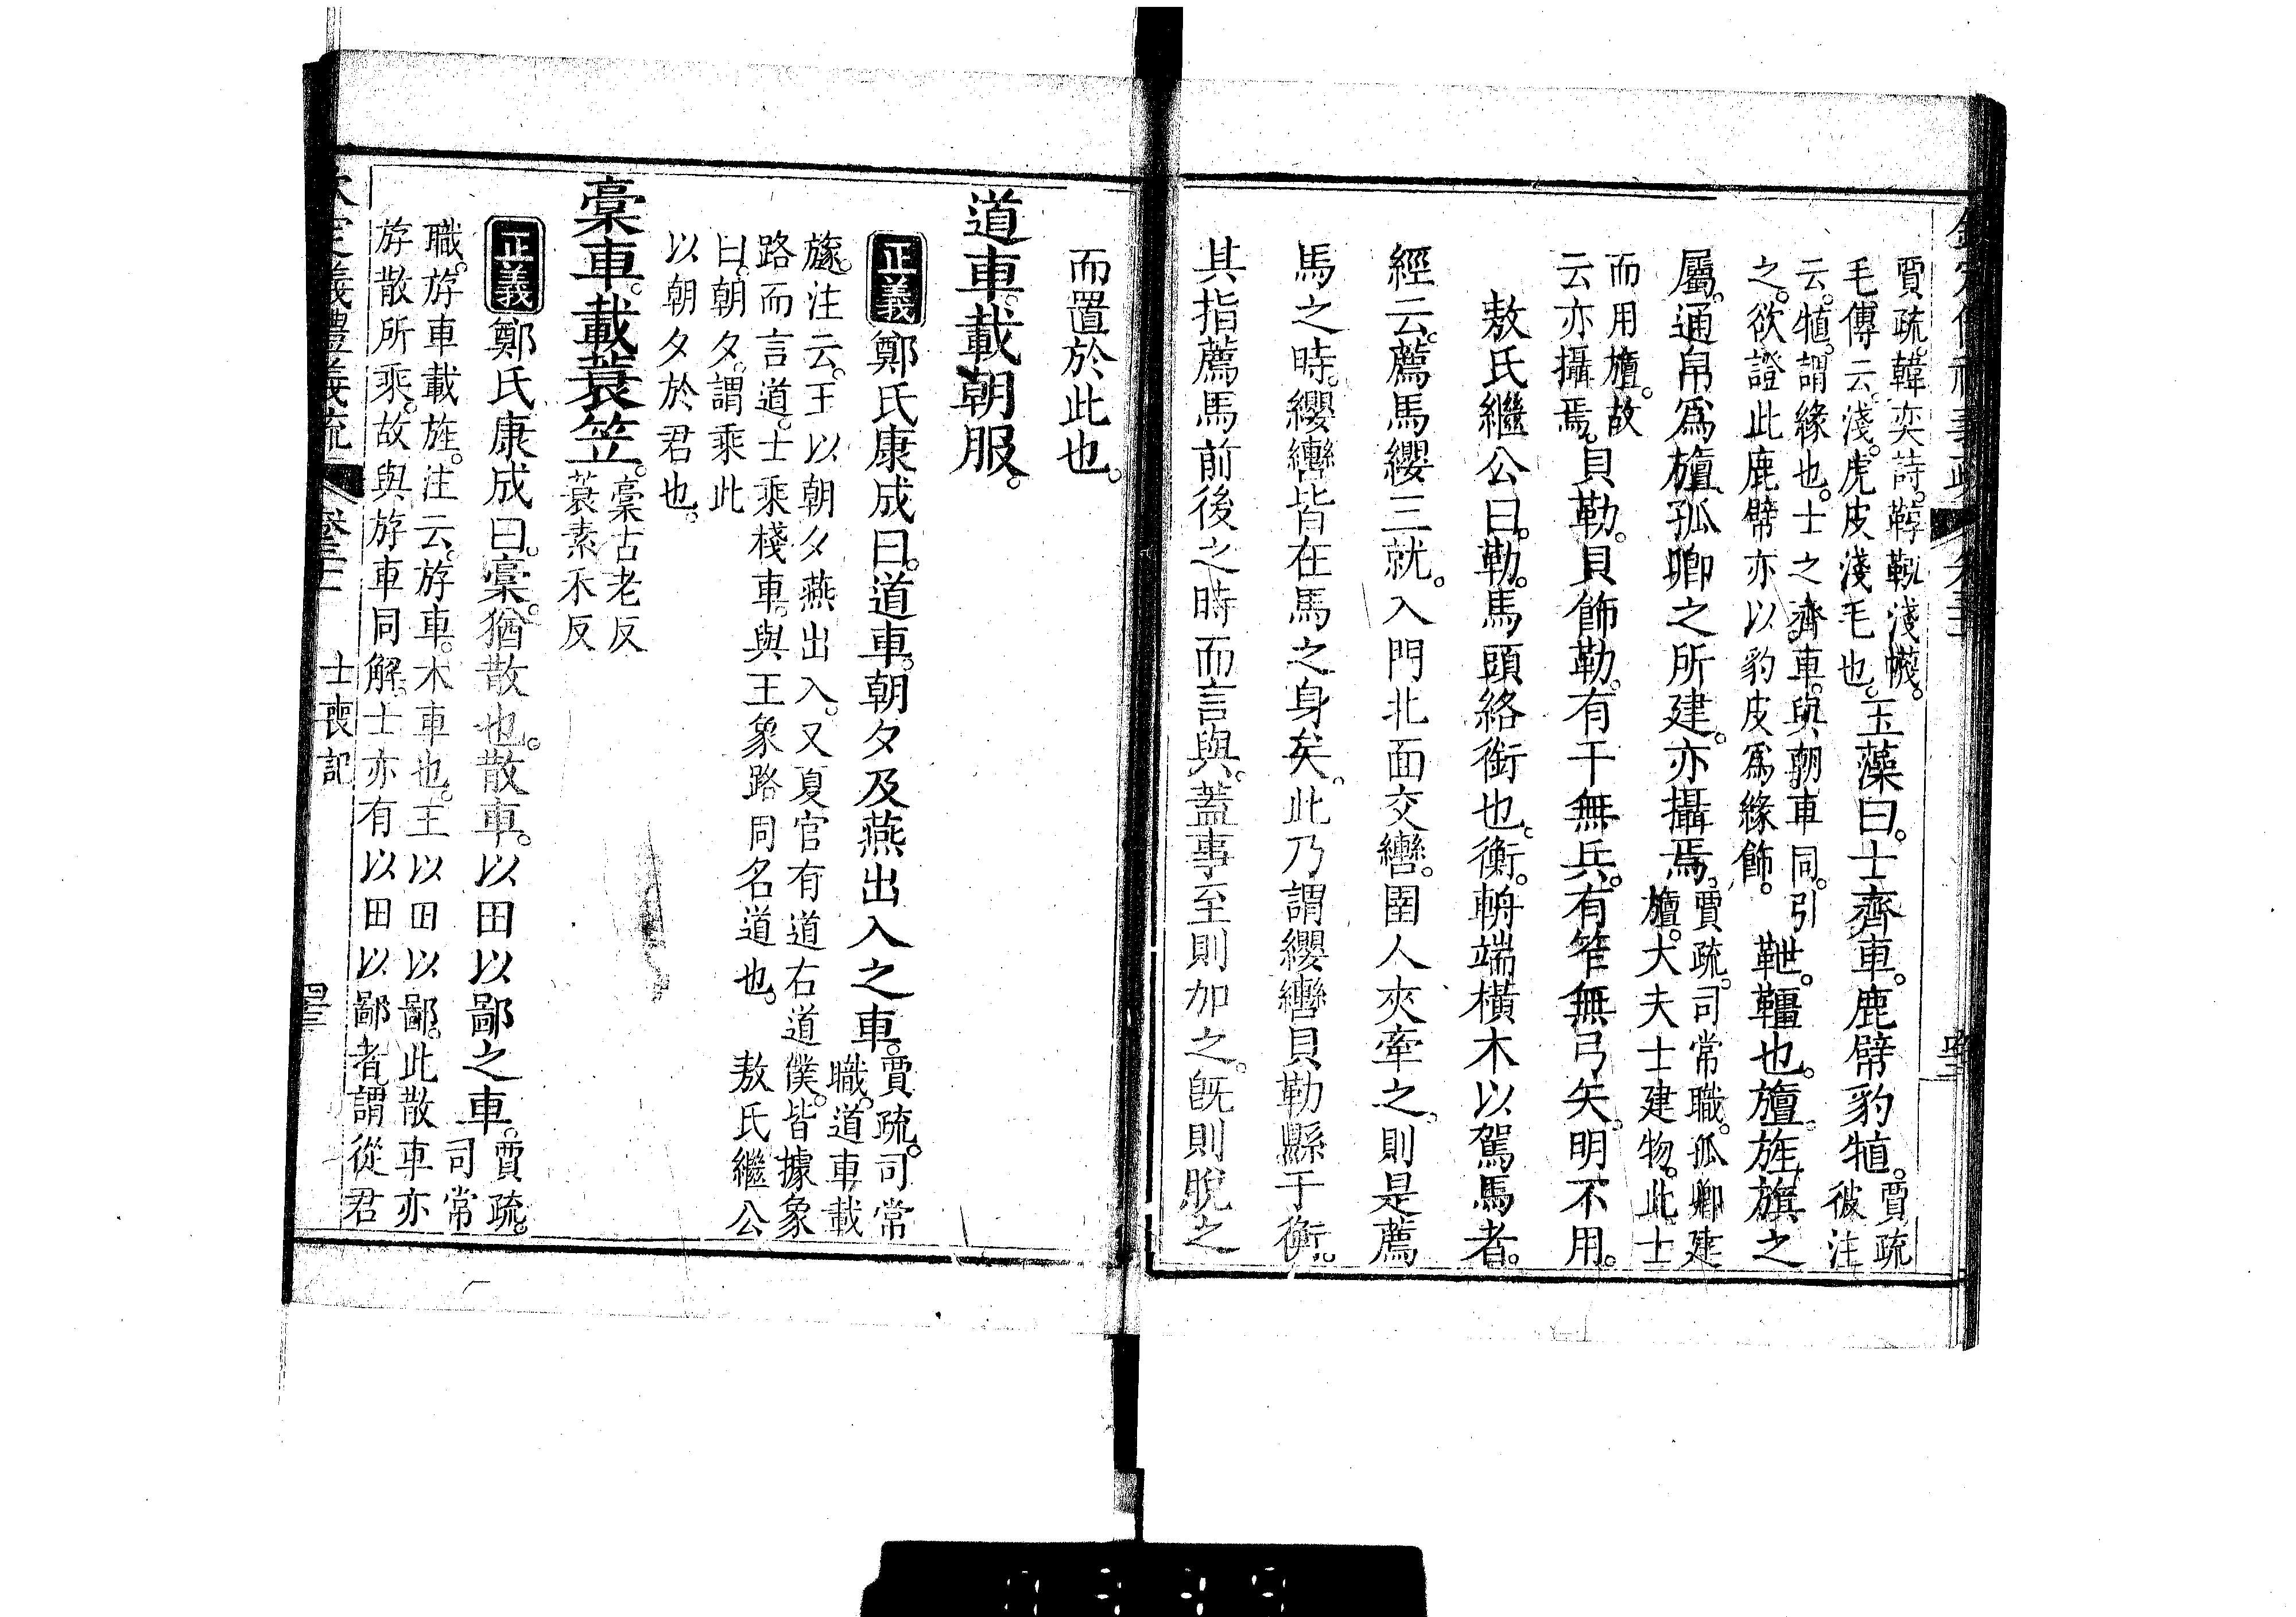 賈疏。韓奕詩。鞹鞃淺幭。
毛傳云。淺。虎皮淺毛也。
玉藻曰。士齊車。鹿幦豹犆。
賈疏
彼注
云。犆。謂緣也。士之齊車。與朝車同。引
之。欲證此鹿幦亦以豹皮爲緣飾。
靾。韁也。旜。旌旗之
屬。通帛爲旜。孤卿之所建。亦攝焉。
賈疏。司常職。孤卿建
旜。大夫士建物。此士
而用旜。故
云亦攝焉。
貝勒。貝飾勒。有干無兵。有笮無弓矢。明不用。
敖氏繼公曰。勒。馬頭絡銜也。衡。輈端橫木以駕馬者。
經云。薦馬纓三就。入門北面交轡。圉人夾牽之。則是薦
馬之時。纓轡皆在馬之身矣。此乃謂纓轡貝勒縣于衡。
其指薦馬前後之時而言與。蓋事至則加之。旣則脫之
而置於此也。
道車。載朝服。
正義 鄭氏康成曰。道車。朝夕及燕出入之車。
賈疏。司常
職。道車載
旞。注云。王以朝夕燕出入。又夏官有道右道僕。皆據象
路而言道。士乘棧車。與王象路同名道也。
敖氏繼公
曰。朝夕。謂乘此
以朝夕於君也。
稾車。載蓑笠。
稾古老反
蓑素禾反
正義 鄭氏康成曰。稾。猶散也。散車。以田以鄙之車。
賈疏。
司常
職。斿車載旌。注云。斿車。木車也。王以田以鄙。此散車亦
斿散所乘。故與斿車同解。士亦有以田以鄙者。謂從君
欽定儀禮義疏 卷三十 士喪記